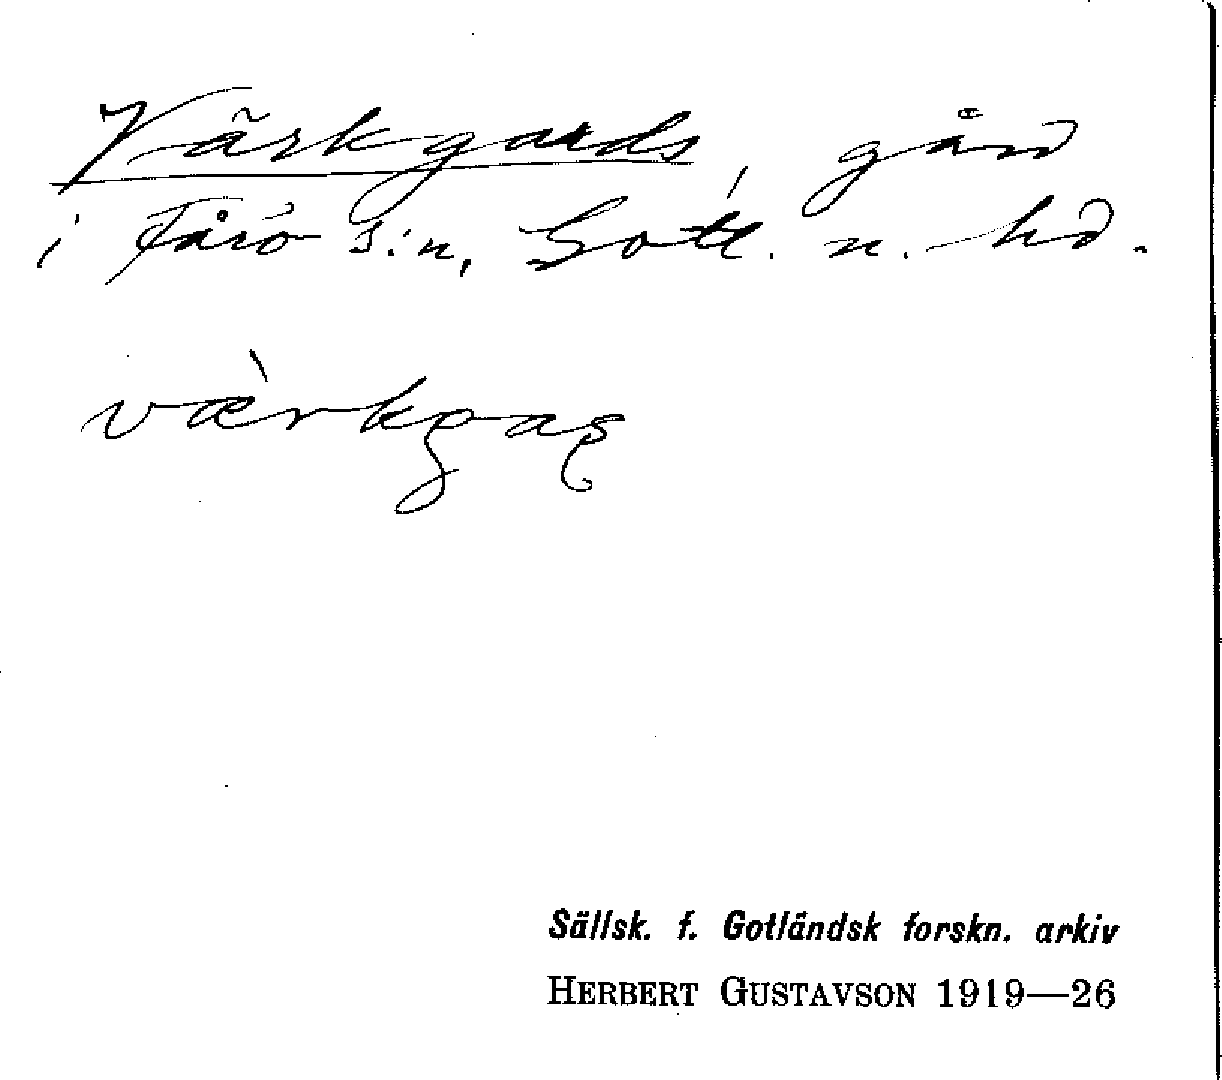 Värkgards, gård
i Fårö s:n, Gotl. n. hd.
værkgaʂ
Sällsk. f. Gotländsk forskn. arkiv
HERBERT GUSTAVSON 1919—26